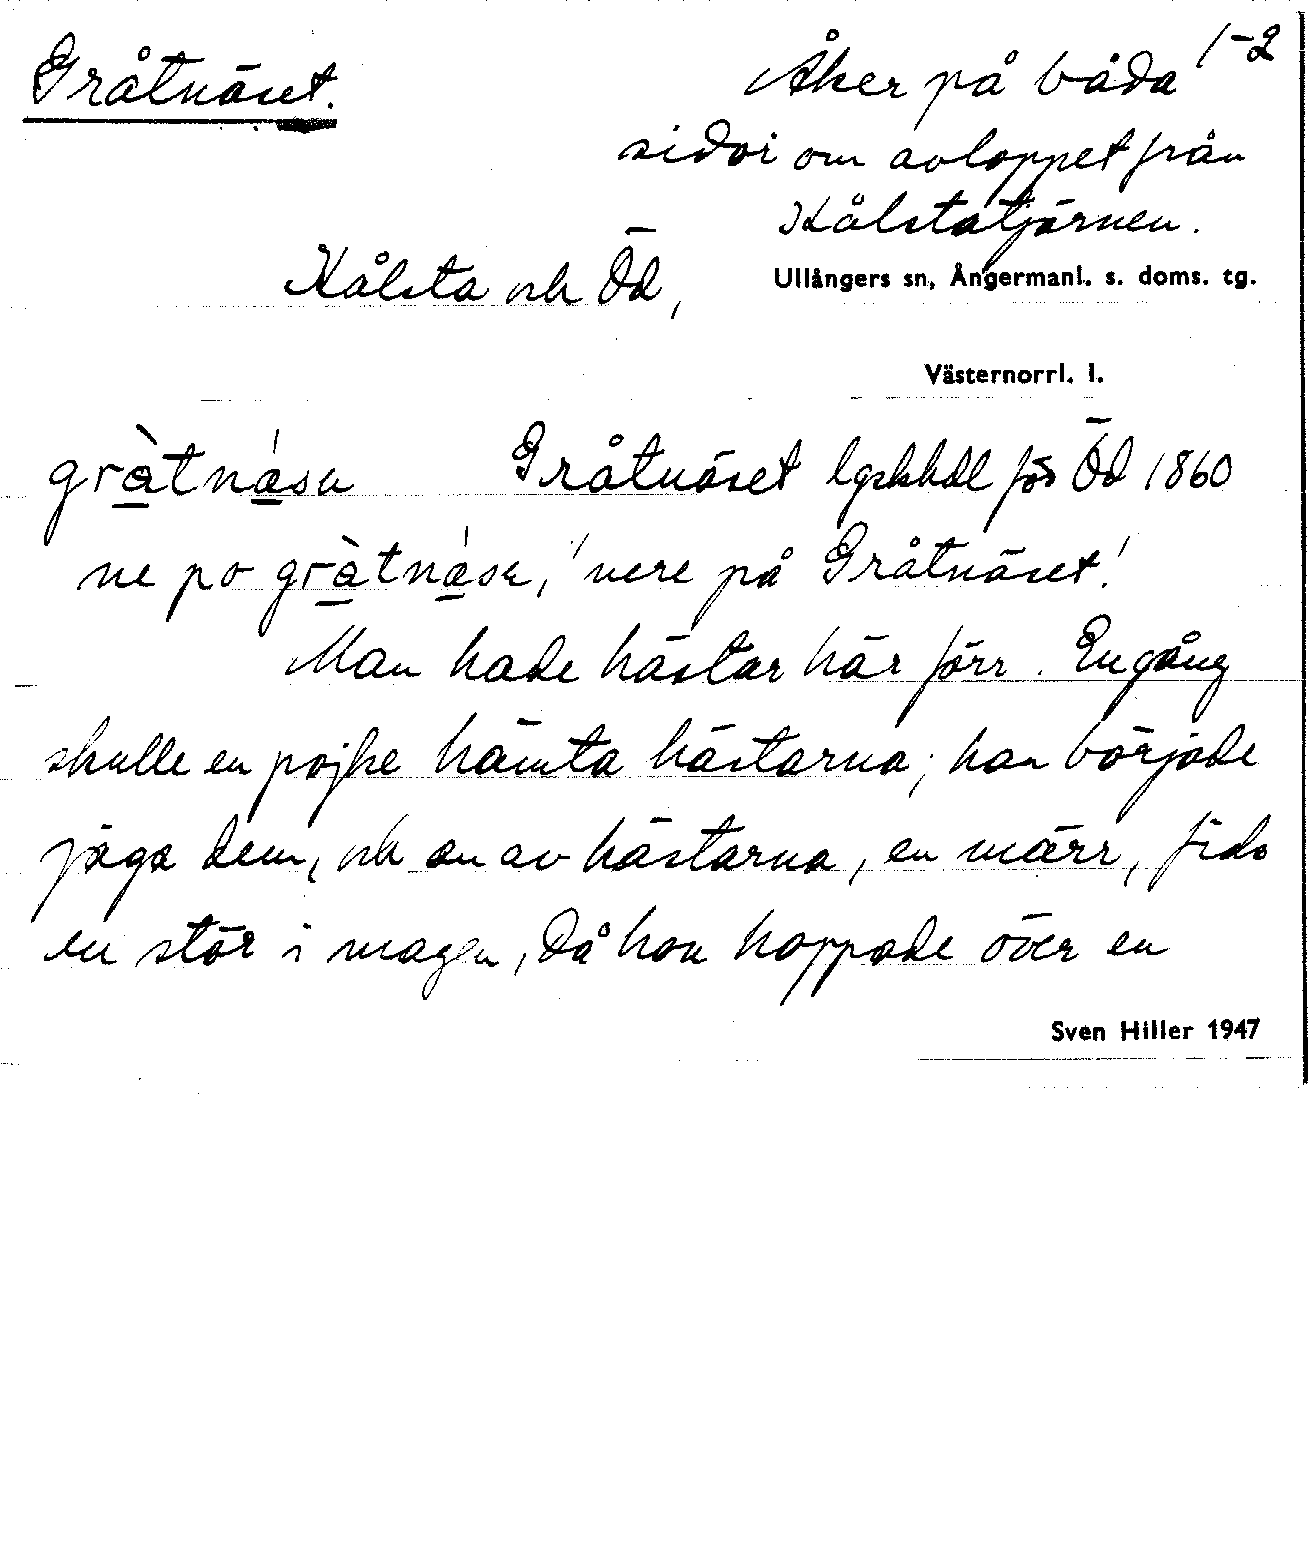 Gråtnäset.
1-2
Åker på båda
sidor om avloppet från
Kålstatjärnen.
Kålsta och Öd,
Ullångers sn, Ångermanl. s. doms. tg.
Västernorrl. l.
gràtnásn Gråtnäset lgskhdl för Öd 1860
ne po gràtnásn, 'nere på Gråtnäset'
Man hade hästar här förr. Engång
skulle en pojke hämta hästarna; han började
jaga dem, och en av hästarna, en märr, fick
en stör i magen, då hon hoppade över en
Sven Hiller 1947